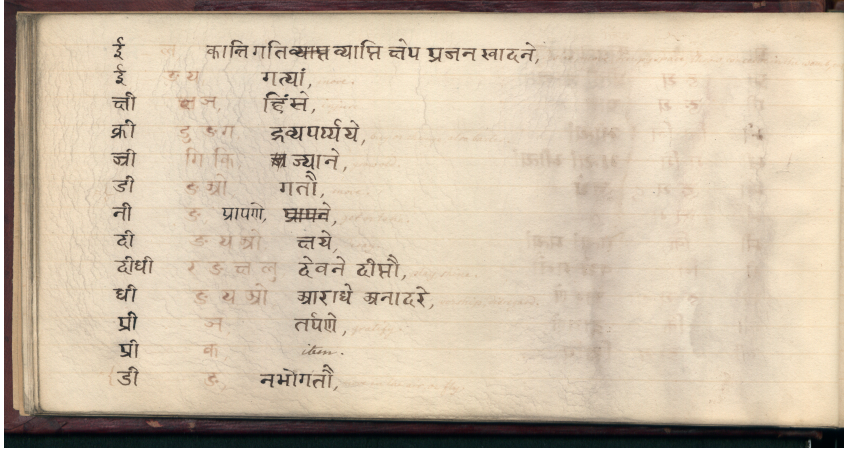 ई ल, कान्तिगतिव्याप्त व्याप्ति क्षेप प्रजन खादने,
ई ङ य गत्यां,
क्षी ष ज, हिंसे,
क्री डु ञ ग द्रव्यपर्य्यये,
ज्री गि कि, ज्याने,
डी ङ ओ गतौ,
नी ङ प्रापणे, प्रापने,
दी ङ य ओ क्षये,
दीधी र ङ क्ष लु देवने दीप्तौ,
धी ङ य ओ आराधे अनादरे,
प्री ञ तर्पणे,
प्री क, item.
डी ङ, नभोगतौ,